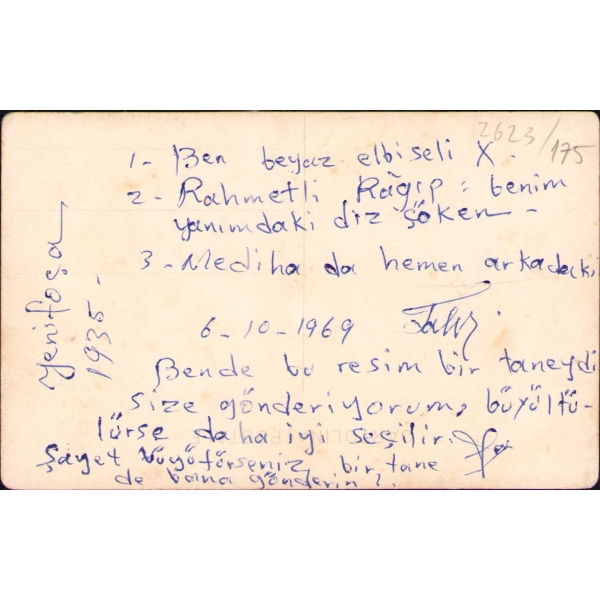 2623/175
1- Ben beyaz elbiseli X
2- Rahmetli Râgıp = benim
yanımdaki diz çöken -
3- Mediha da hemen arkadaki
6-10-1969
Bende bu resim bir taneydi
size gönderiyorum, büyültü-
lürse daha iyi seçilir.
Şayet büyütürseniz bir tane
de bana gönderin.
Yenifoça
1935-